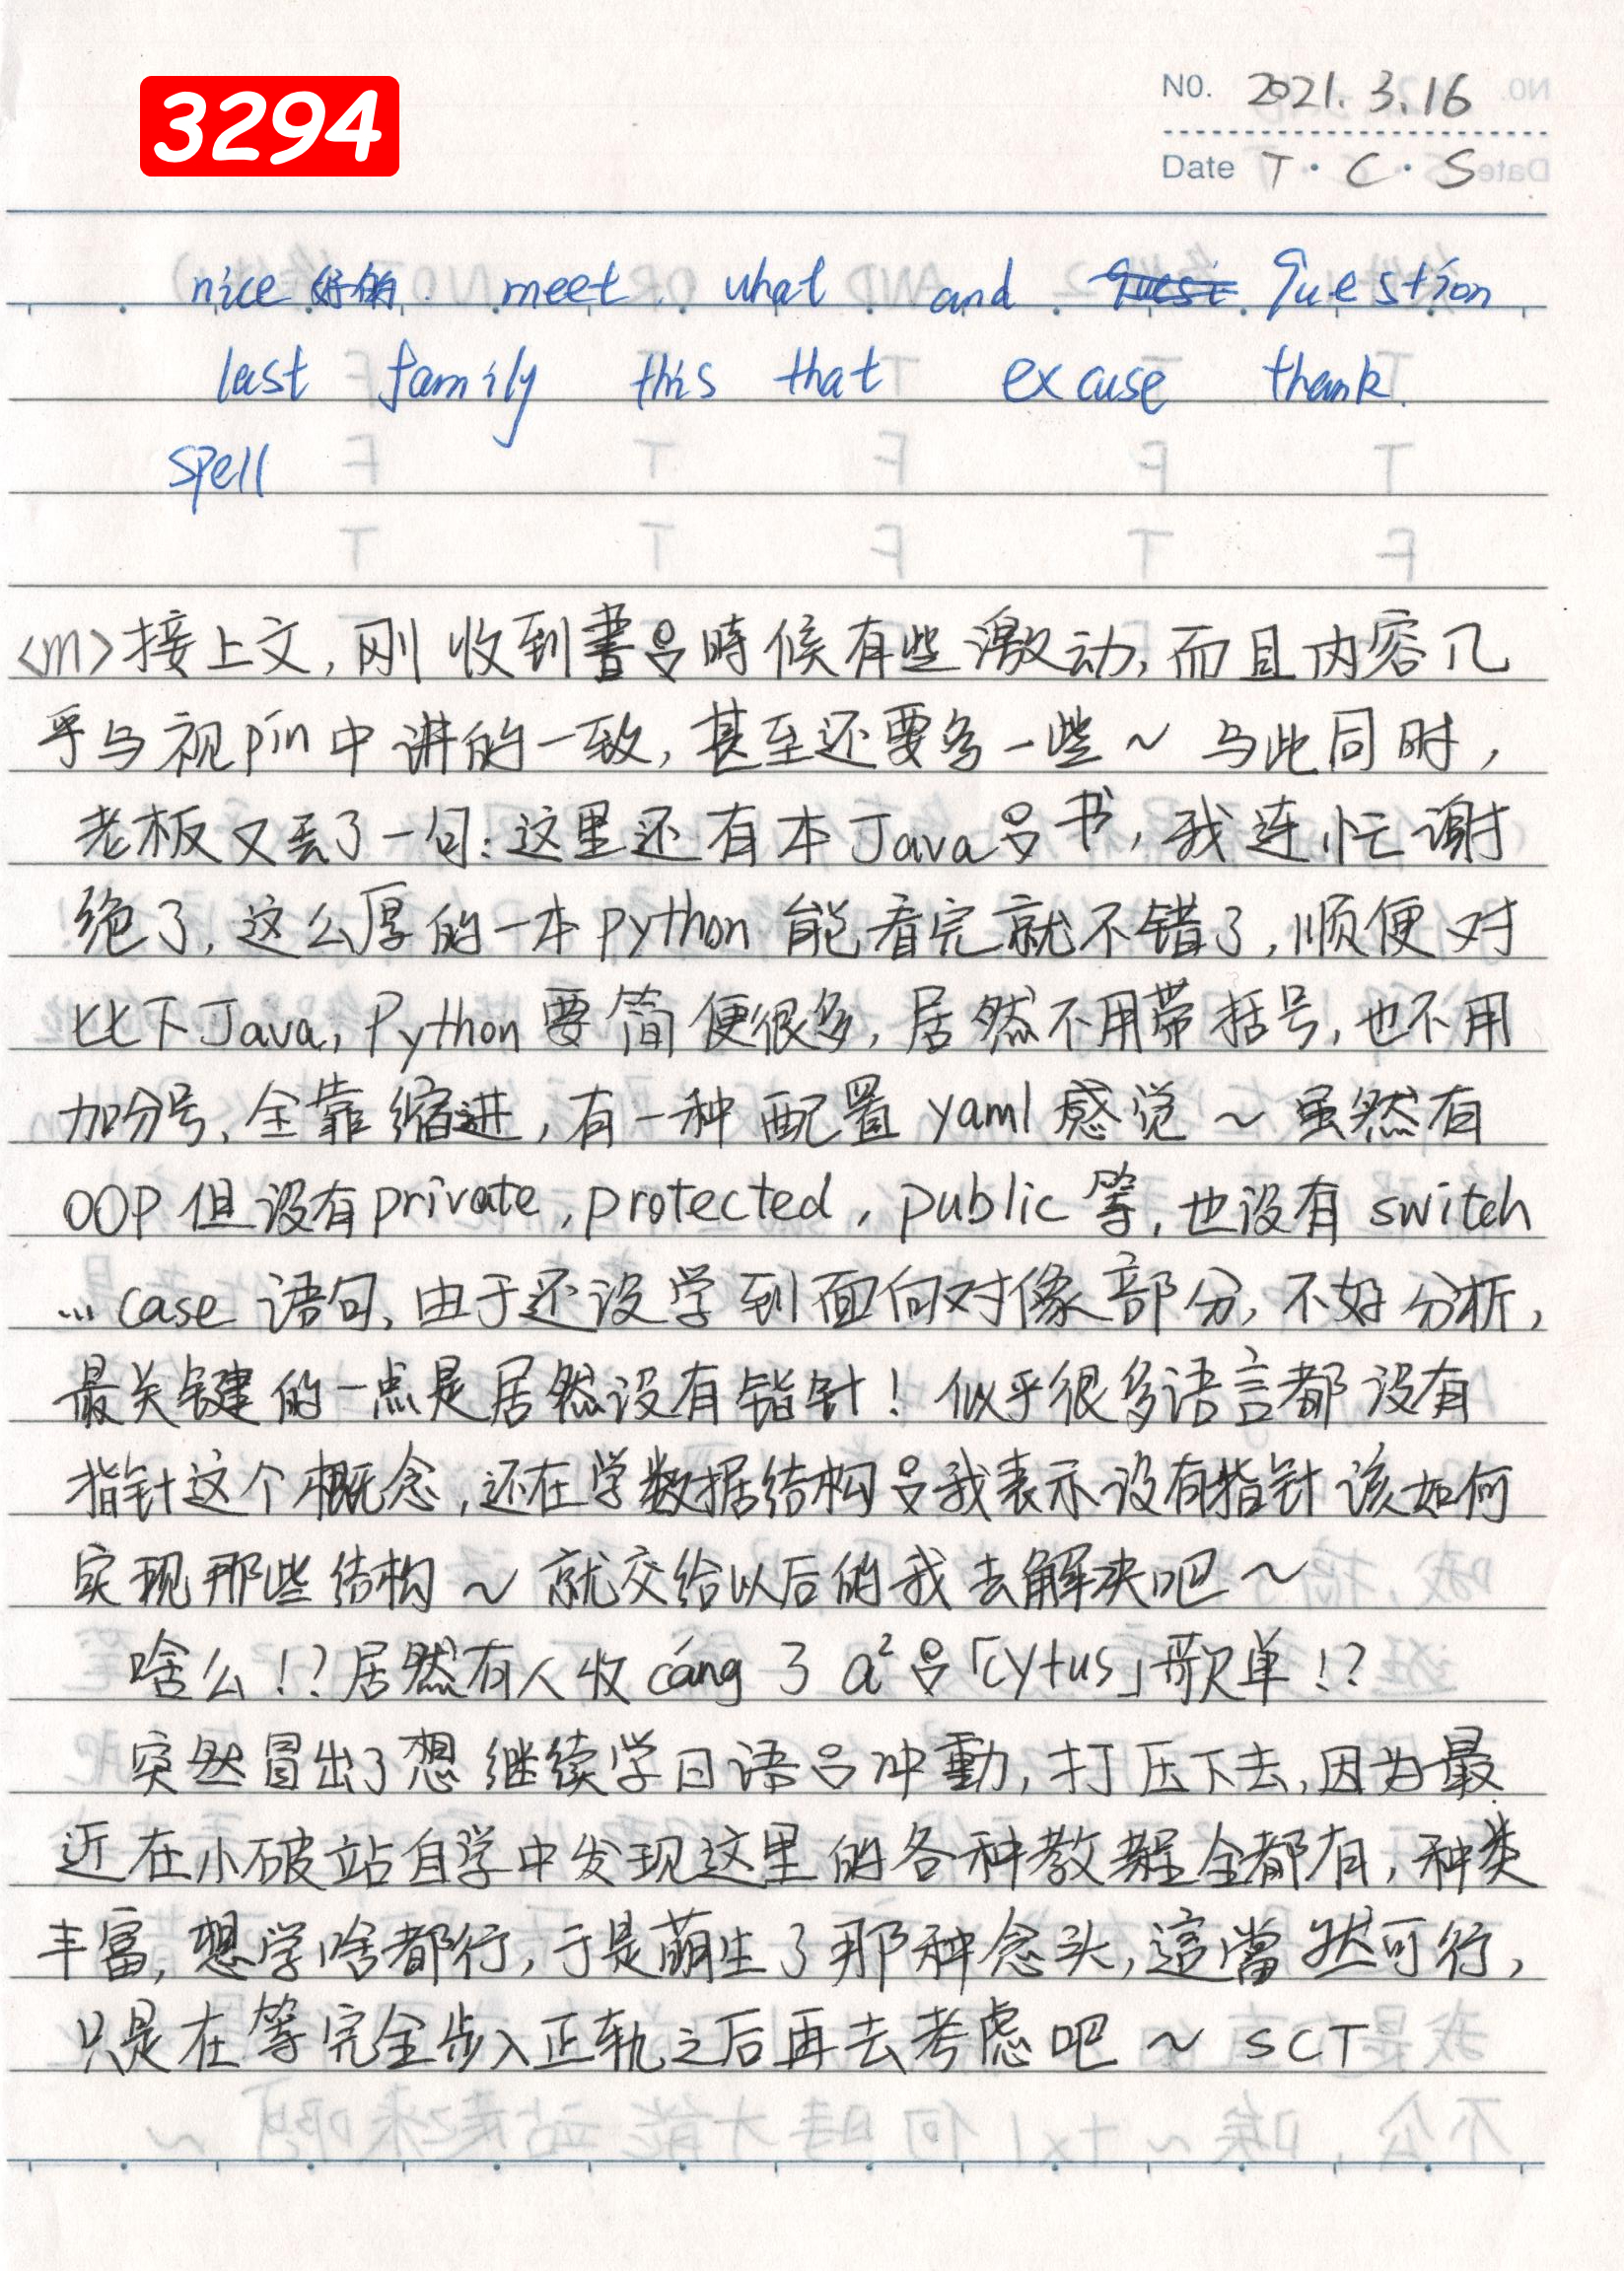 3294
NO. 2021.3.16
Date T·C·S
nice 好的 meet what and question
last family this that excuse thank
spell
<m>接上文,刚收到書吕時候有些激动,而且内容几
乎与视pín中讲的一致,甚至还要多一些~与此同时,
老板又丢了一句:这里还有本Java吕书,我连忙谢
绝了,这么厚的一本python能看完就不错了,顺便对
比下Java,Python要简便很多,居然不用带括号,也不用
加分号、全靠缩进,有一种配置yaml感觉~虽然有
OOP但没有private,protected,public等,也没有switch
…case语句,由于还没学到面向对像部分,不好分析,
最关键的一点是居然没有指针!似乎很多语言都没有
指针这个概念,还在学数据结构吕我表示没有指针该如何
实现那些结构~就交给以后的我去解决吧~
啥么!?居然有人收cáng了a²吕「Cytus」歌单!?
突然冒出了想继续学日语吕冲動,打压下去,因为最
近在小破站自学中发现这里的各种教程全都有,种类
丰富,想学啥都行,于是萌生了那种念头,這當然可行,
只是在等完全步入正轨之后再去考虑吧~SCT